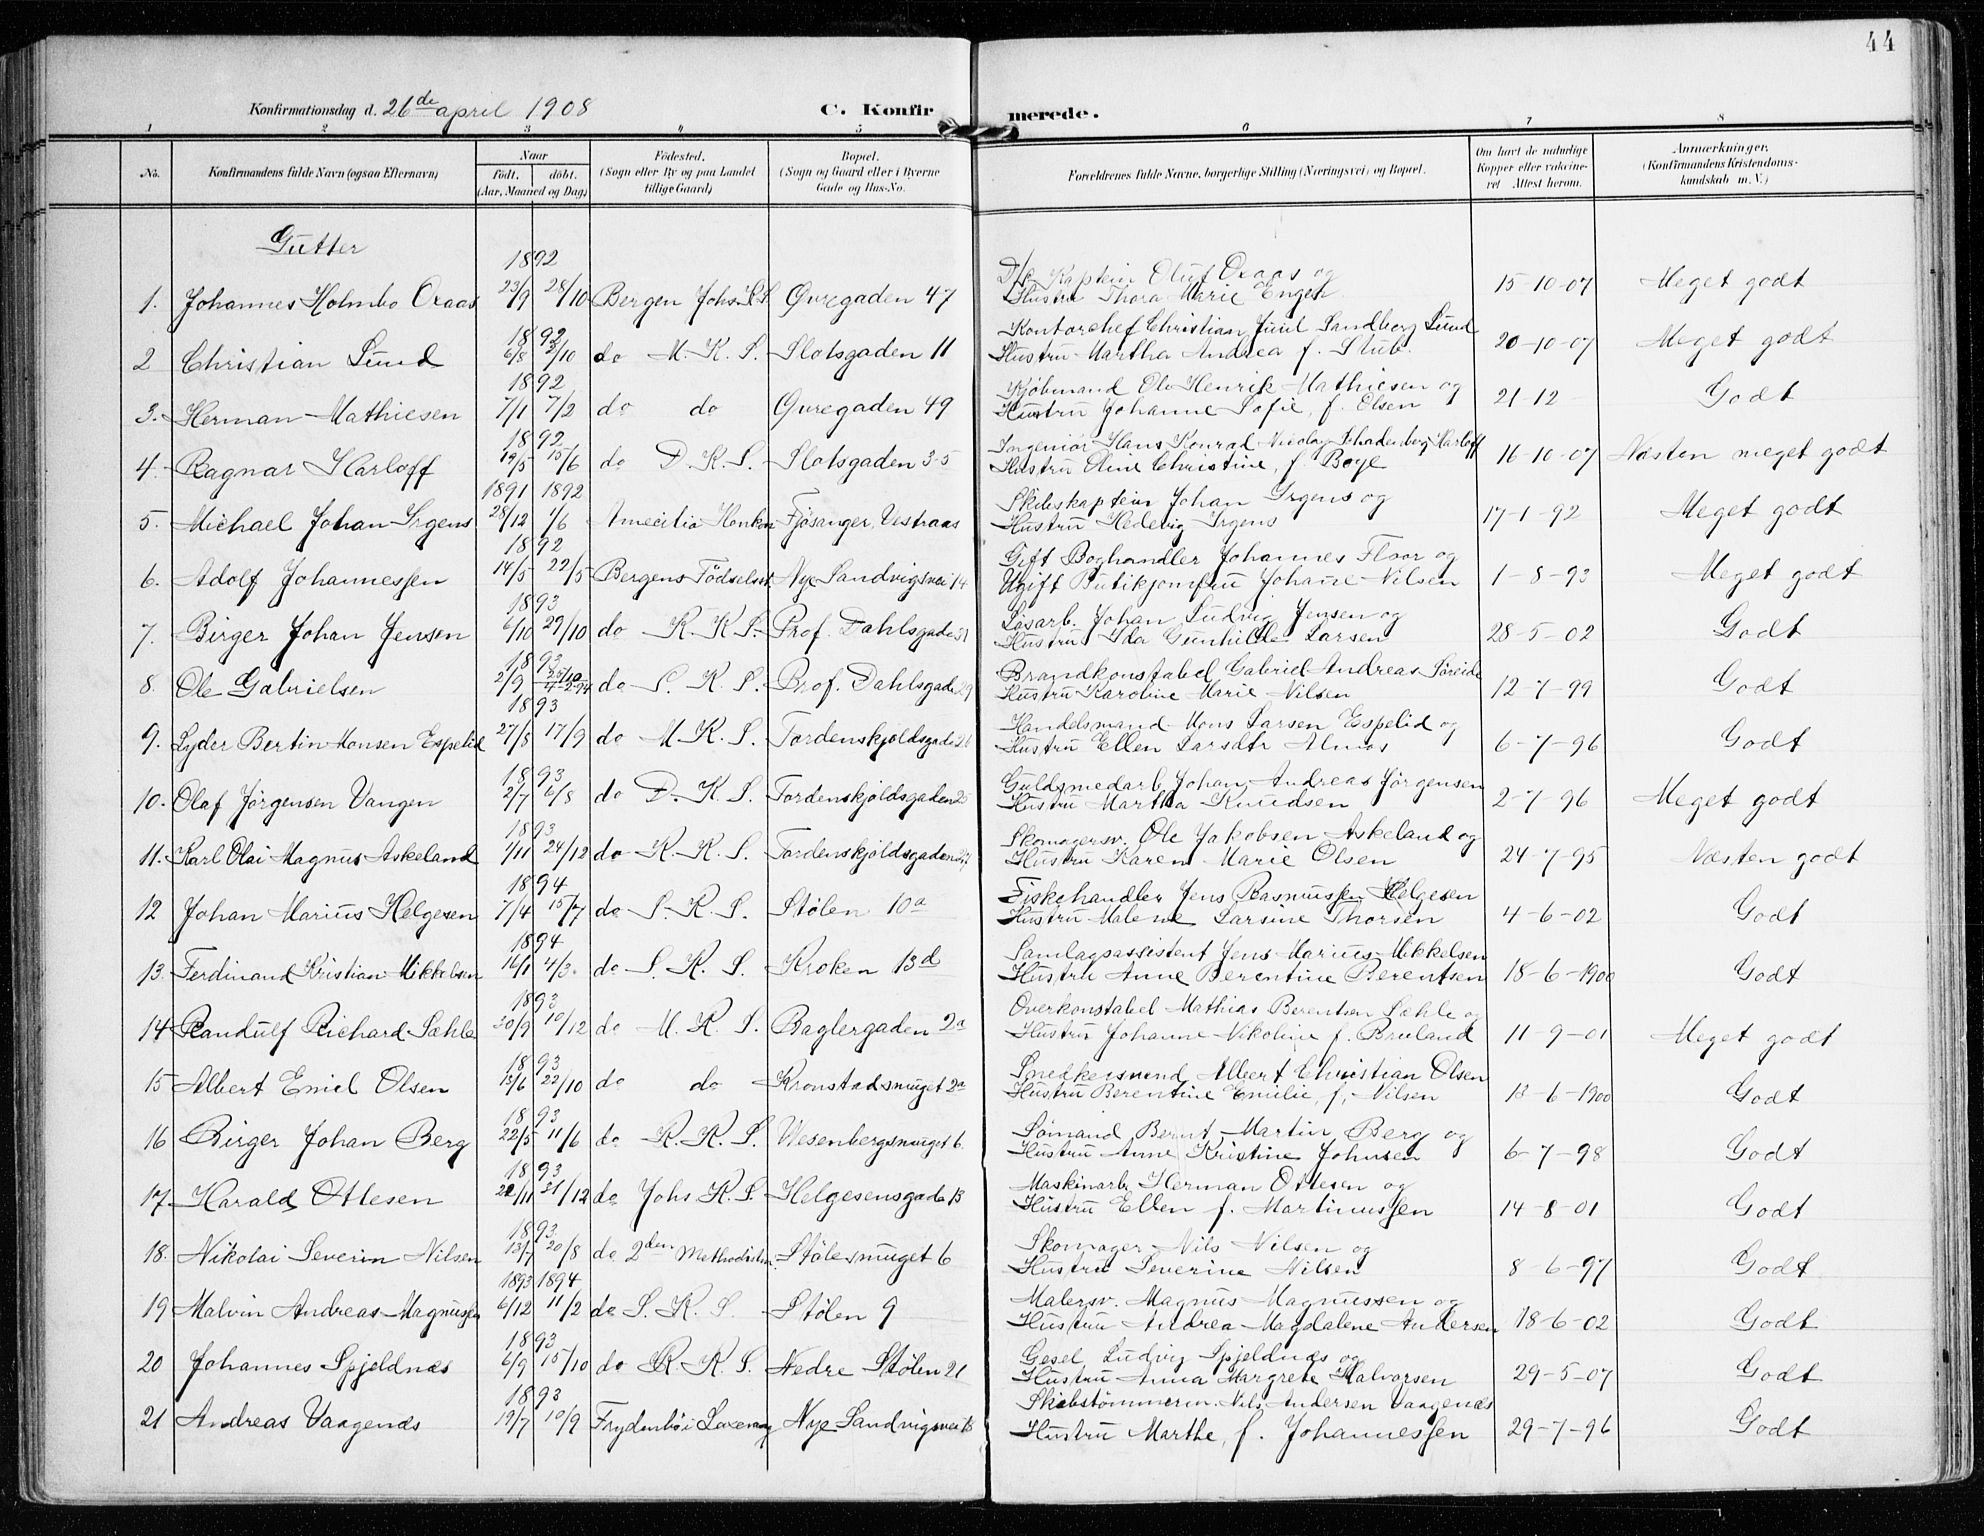 44
Konfirmationsdag d. 26de april 1908 C. Konfir merede.
1 2 3 4 5 6 7 8
No. Konfirmandens fulde Navn (ogsaa Efternavn) Naar Født. døbt. (Aar, Maaned og Dag) Fødested. (Sogn eller By og paa Landet tillige Gaard) Bopæl. (Sogn og Gaard eller i Byerne Gade og Hus-No. Forældrenes fulde Navne, borgerlige Stilling (Næringsvei) og Bopæl. Om havt de naturlige Kopper eller vaccineret Attest herom. Anmærkninger. (Konfirmandens Kristendomskundskab m. V.)
Gutter
1892 D/S Kaptein Oluf Oraas og
1. Johannes Holmbo Oraas 23/9 28/10 Bergen Johs K.S. Øvregaden 47 Hustru Thora Marie Engen 15-10-07 Meget godt
1892 Kontorchef Christian Juul Sandberg Lund
2 Christian Lund 6/8 2/10 do M.K.S. Slotsgaden 11 Hustru Martha Andrea f. Stub. 20-10-07 Meget godt
1892 Kjøbmand Ole Henrik Mathiesen og
3. Herman Mathiesen 7/1 7/2 do do Øvregaden 49 Hustru Johanne Sofie, f. Olsen 21-12- Godt
1892 Ingeniør Hans Konrad Nicolay Harloff
4. Ragnar Harloff 19/5 15/6 do D.K.S. Slotsgaden 3-5 Hustru Oline Christine, f. Boye 16-10-07 Næsten meget godt
1891 1892 Skibskaptein Johan Irgens og
5. Michael Johan Irgens 28/12 1/6 Fjøsanger, Vestraas Hustru Hedevig Irgens 17-1-92 Meget godt
1892 Gift Boghandler Johannes Floor og
6. Adolf Johannessen 14/5 22/5 Bergens Fødselsst. Nye Sandvigsvei 14 Ugift Butikjomfru Johane Nilsen 1-8-93 Meget godt
1893 Løsarb. Johan Ludvig Jensen og
7. Birger Johan Jensen 6/10 29/10 do K.K.S. Prof. Dahlsgade 31 Hustru Ida Gunhilde Larsen 28-5-02 Godt
1893 Brandkonstabel Gabriel Andreas Søreide
8. Ole Gabrielsen 2/9 do S.K.S. Prof. Dahlsgade 29 Hustru Karoline Marie Nilsen 12-7-99 Godt
1893 Handelsmand Mons Larsen Espelid og
9. Lyder Bertin Monsen Espelid 27/8 17/9 do M.K.S. Tordenskjoldsgade Hustru Ellen Larsdtr Almås 6-7-96 Godt
1893 Guldsmedarb. Johan Andreas Jørgensen
10. Olaf Jørgensen Vangen 2/7 6/8 do D.K.S. Tordenskjoldsgaden Hustru Martha Knudsen 2-7-96 Meget godt
1893 Skomagersv. Ole Jakobsen Askeland og
11. Karl Olai Magnus Askeland 7/11 24/12 do K.K.S. Tordenskjoldsgaden Hustru Karen Marie Olsen 24-7-95 Næsten godt
1894 Fiskehandler Jens Rasmussen Helgesen
12 Johan Marius Helgesen 7/4 15/7 do S.K.S. Stølen 10a Hustru Malene Larsine Thorsen 4-6-02 Godt
1894 Samlagsassistent Jens Marius Mikkelsen
13. Ferdinand Kristian Mikkelsen 16/1 4/3 do S.K.S. Kroken 13d Hustru Anne Berentine Berentsen 18-6-1900 Godt
1893 Overkonstabel Mathias Berentsen Sæhle og
14 Randulf Richard Sæhle 30/9 10/12 do M.K.S. Baglergaden 2a Hustru Johanne Nikoline f. Bruland 11-9-01 Meget godt
1893 Snedkersvend Albert Christian Olsen
15 Albert Emil Olsen 13/6 22/10 do do Kronstadsmuget 2a Hustru Berentine Emilie, f. Nilsen 13-6-1900 Godt
1893 Sømand Bernt Martin Berg og
16 Birger Johan Berg 22/5 11/6 do K.K.S. Wesenbergsmuget 6 Hustru Anne Kristine Johnsen 6-7-98 Godt
1893 Maskinarb. Herman Ottesen og
17. Harald Ottesen 22/11 31/12 do Johs K.S. Helgesensgade 13 Hustru Ellen f. Martinussen 14-8-01 Godt
1893 Skomager Nils Nilsen og
18. Nikolai Severin Nilsen 13/7 20/8 do 2den Methodistm. Stølesmuget 6 Hustru Severine Nilsen 8-6-97 Godt
1893 1894 Malersv. Magnus Magnussen og
19 Malvin Andreas Magnussen 6/12 11/2 do S.K.S. Stølen 9 Hustru Andrea Magdalene Andersen 18-6-02 Godt
1893 Gesel Ludvig Spjeldnæs og
20 Johannes Spjeldnæs 6/9 15/10 do K.K.S. Nedre Stølen 21 Hustru Anna Margrete Halvorsen 29-5-07 Godt
1893 Skibstømmerm. Nils Andersen Vaagenæs
21 Andreas Vaagenæs 19/7 10/9 Frydenbøi Laxevaag Nye Sandvigsvei 13 Hustru Marthe, f. Johannessen 29-7-96 Godt